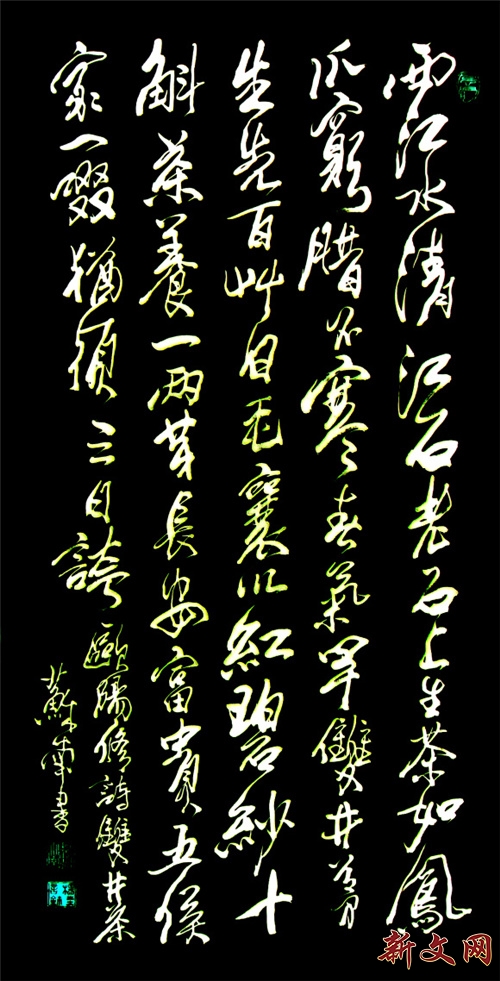 西江水清江石老石上生茶如鳳
爪窮臘不寒春氣早雙井芽
生先百艸白毛囊以紅碧紗十
斛茶養一兩芽長安富貴五侯
家一啜猶須三日誇 歐陽修詩雙井茶
蘇書
新文网